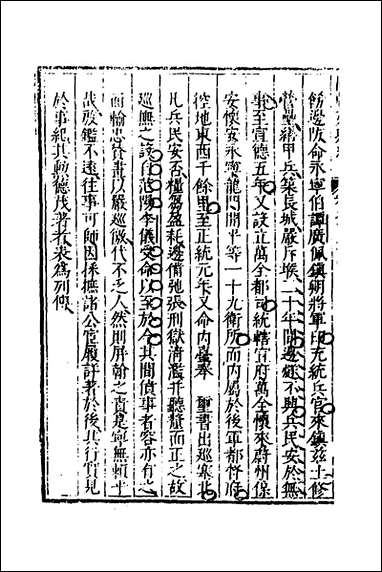 飭邊防命永寧伯譚廣佩鎮朔將軍印充總兵官來鎮茲土修
營壘繕甲兵築長城嚴斥堠二十年間邊廷不興兵民安於無
事至宣德五年又設立萬全都司統轄宣府萬全懷來蔚州保
安懷安永寧龍門開平等一十九衛所而内屬於後軍都督府
控地東西千餘里至正統元年又命内臺奉　聖書出巡塞北
凡兵民安否糧芻盈耗邊備弛張刑獄清濫并聽釐而正之故
巡撫之設自范陽李儀受命以至於今其間僨事者容亦有之
而輸忠貲畫以嚴巡徼代不乏人然則屏翰之責是寧無賴乎
哉殷鑑不遠往事可師因採撫諸公宦履詳著於後其行實見
於事紀其勳德茂著者表爲列傳